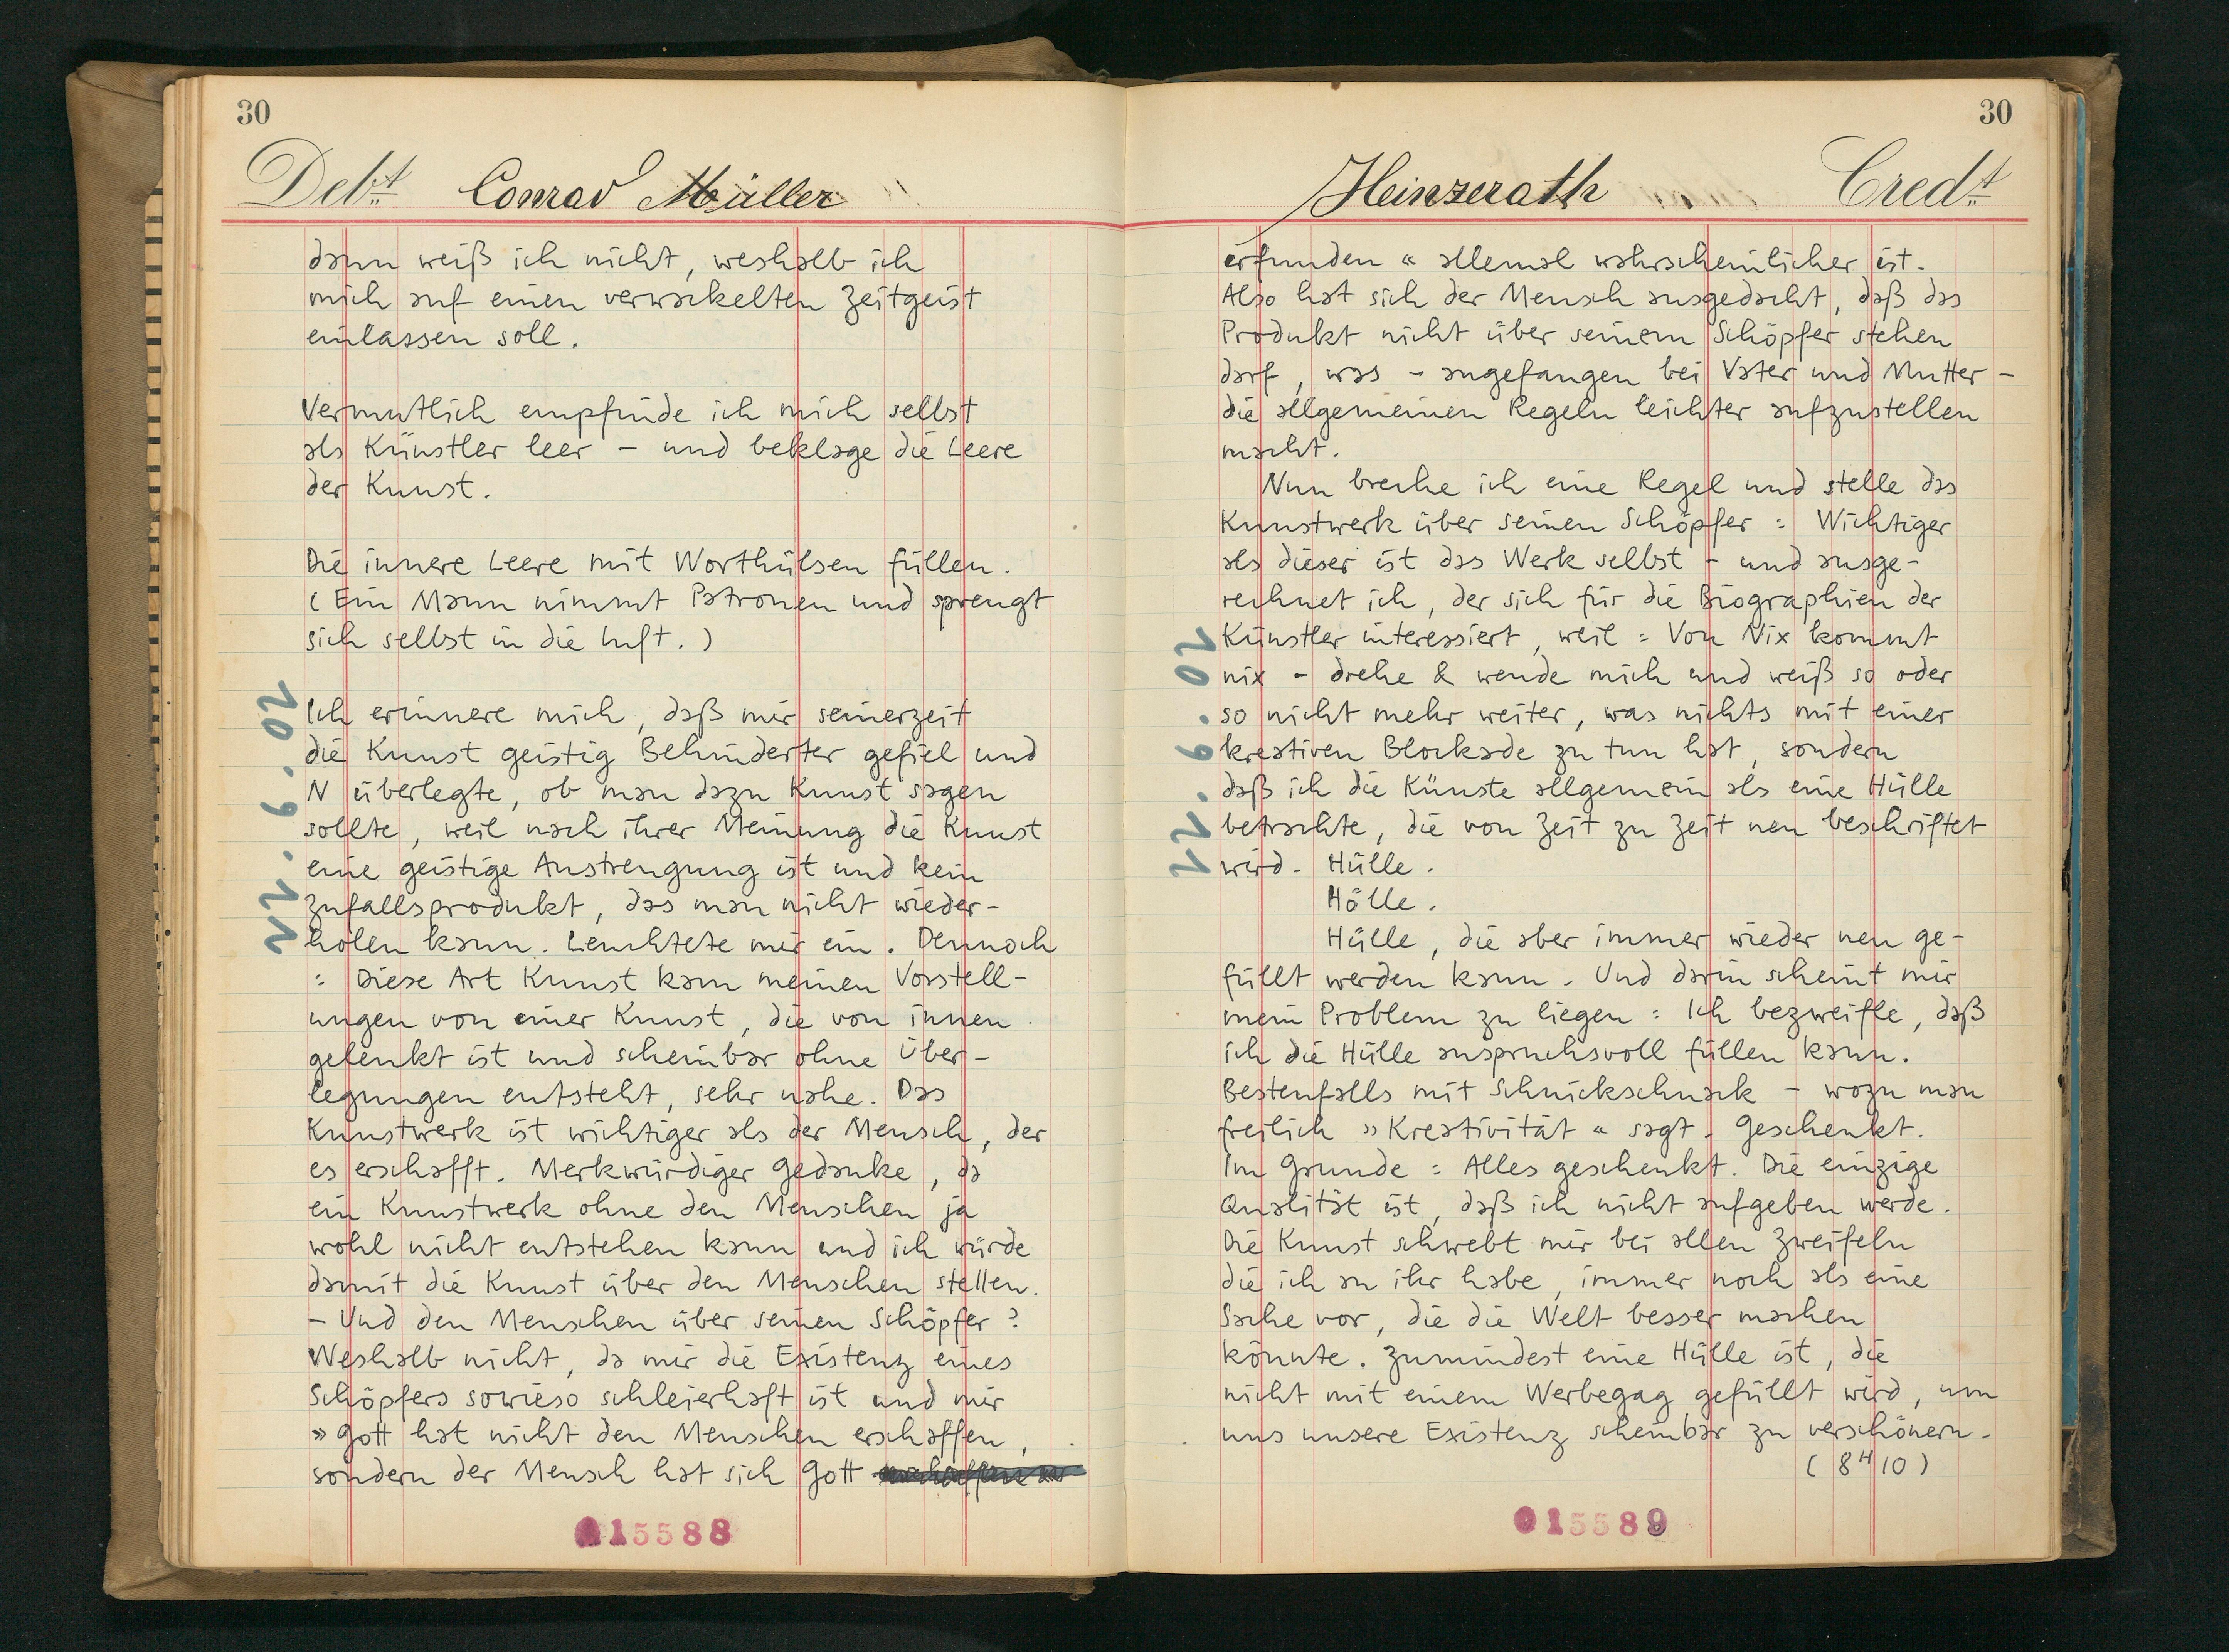 30
Debt. Conrad Müller
dann weiß ich nicht, weshalb ich
mich auf einen verwackelten Zeitgeist
einlassen soll.
Vermutlich empfinde ich mich selbst
als Künstler leer – und beklage die Leere
der Kunst.
Die innere Leere mit Worthülsen füllen.
(Ein Mann nimmt Patronen und sprengt
sich selbst in die Luft.)
Ich erinnere mich, daß mir seinerzeit
die Kunst geistig Behinderter gefiel und
N überlegte, ob man dazu Kunst sagen
sollte, weil nach ihrer Meinung die Kunst
eine geistige Anstrengung ist und kein
Zufallsprodukt, das man nicht wieder-
holen kann. Leuchtete mir ein. Dennoch
: Diese Art Kunst kam meinen Vorstell-
ungen von einer Kunst, die von innen
gelenkt ist und scheinbar ohne Über-
legungen entsteht, sehr nahe. Das
Kunstwerk ist wichtiger als der Mensch, der
es erschafft. Merkwürdiger Gedanke, da
ein Kunstwerk ohne den Menschen ja
wohl nicht entstehen kann und ich würde
damit die Kunst über den Menschen stellen.
– Und den Menschen über seinen Schöpfer?
Weshalb nicht, da mir die Existenz eines
Schöpfers sowieso schleierhaft ist und mir
» Gott hat nicht den Menschen erschaffen,
sondern der Mensch hat sich Gott
015588
30
Heinzerath Credt.
erfunden « allemal wahrscheinlicher ist.
Also hat sich der Mensch ausgedacht, daß das
Produkt nicht über seinem Schöpfer stehen
darf, was – angefangen bei Vater und Mutter –
die allgemeinen Regeln leichter aufzustellen
macht.
Nun breche ich eine Regel und stelle das
Kunstwerk über seinen Schöpfer : Wichtiger
als dieser ist das Werk selbst – und ausge-
rechnet ich, der sich für die Biographien der
Künstler interessiert, weil : Von Nix kommt
nix – drehe & wende mich und weiß so oder
so nicht mehr weiter, was nichts mit einer
kreativen Blockade zu tun hat, sondern
daß ich die Künste allgemein als eine Hülle
betrachte, die von Zeit zu Zeit neu beschriftet
wird. Hülle.
Hölle.
Hülle, die aber immer wieder neu ge-
füllt werden kann. Und darin scheint mir
mein Problem zu liegen : Ich bezweifle, daß
ich die Hülle anspruchsvoll füllen kann.
Bestenfalls mit Schnickschnack – wozu man
freilich » Kreativität « sagt. Geschenkt.
Im Grunde : Alles geschenkt. Die einzige
Qualität ist, daß ich nicht aufgeben werde.
Die Kunst schwebt mir bei allen Zweifeln
die ich an ihr habe, immer noch als eine
Sache vor, die die Welt besser machen
könnte. Zumindest eine Hülle ist, die
nicht mit einem Werbegag gefüllt wird, um
uns unsere Existenz scheinbar zu verschönern.
(8H10)
015589